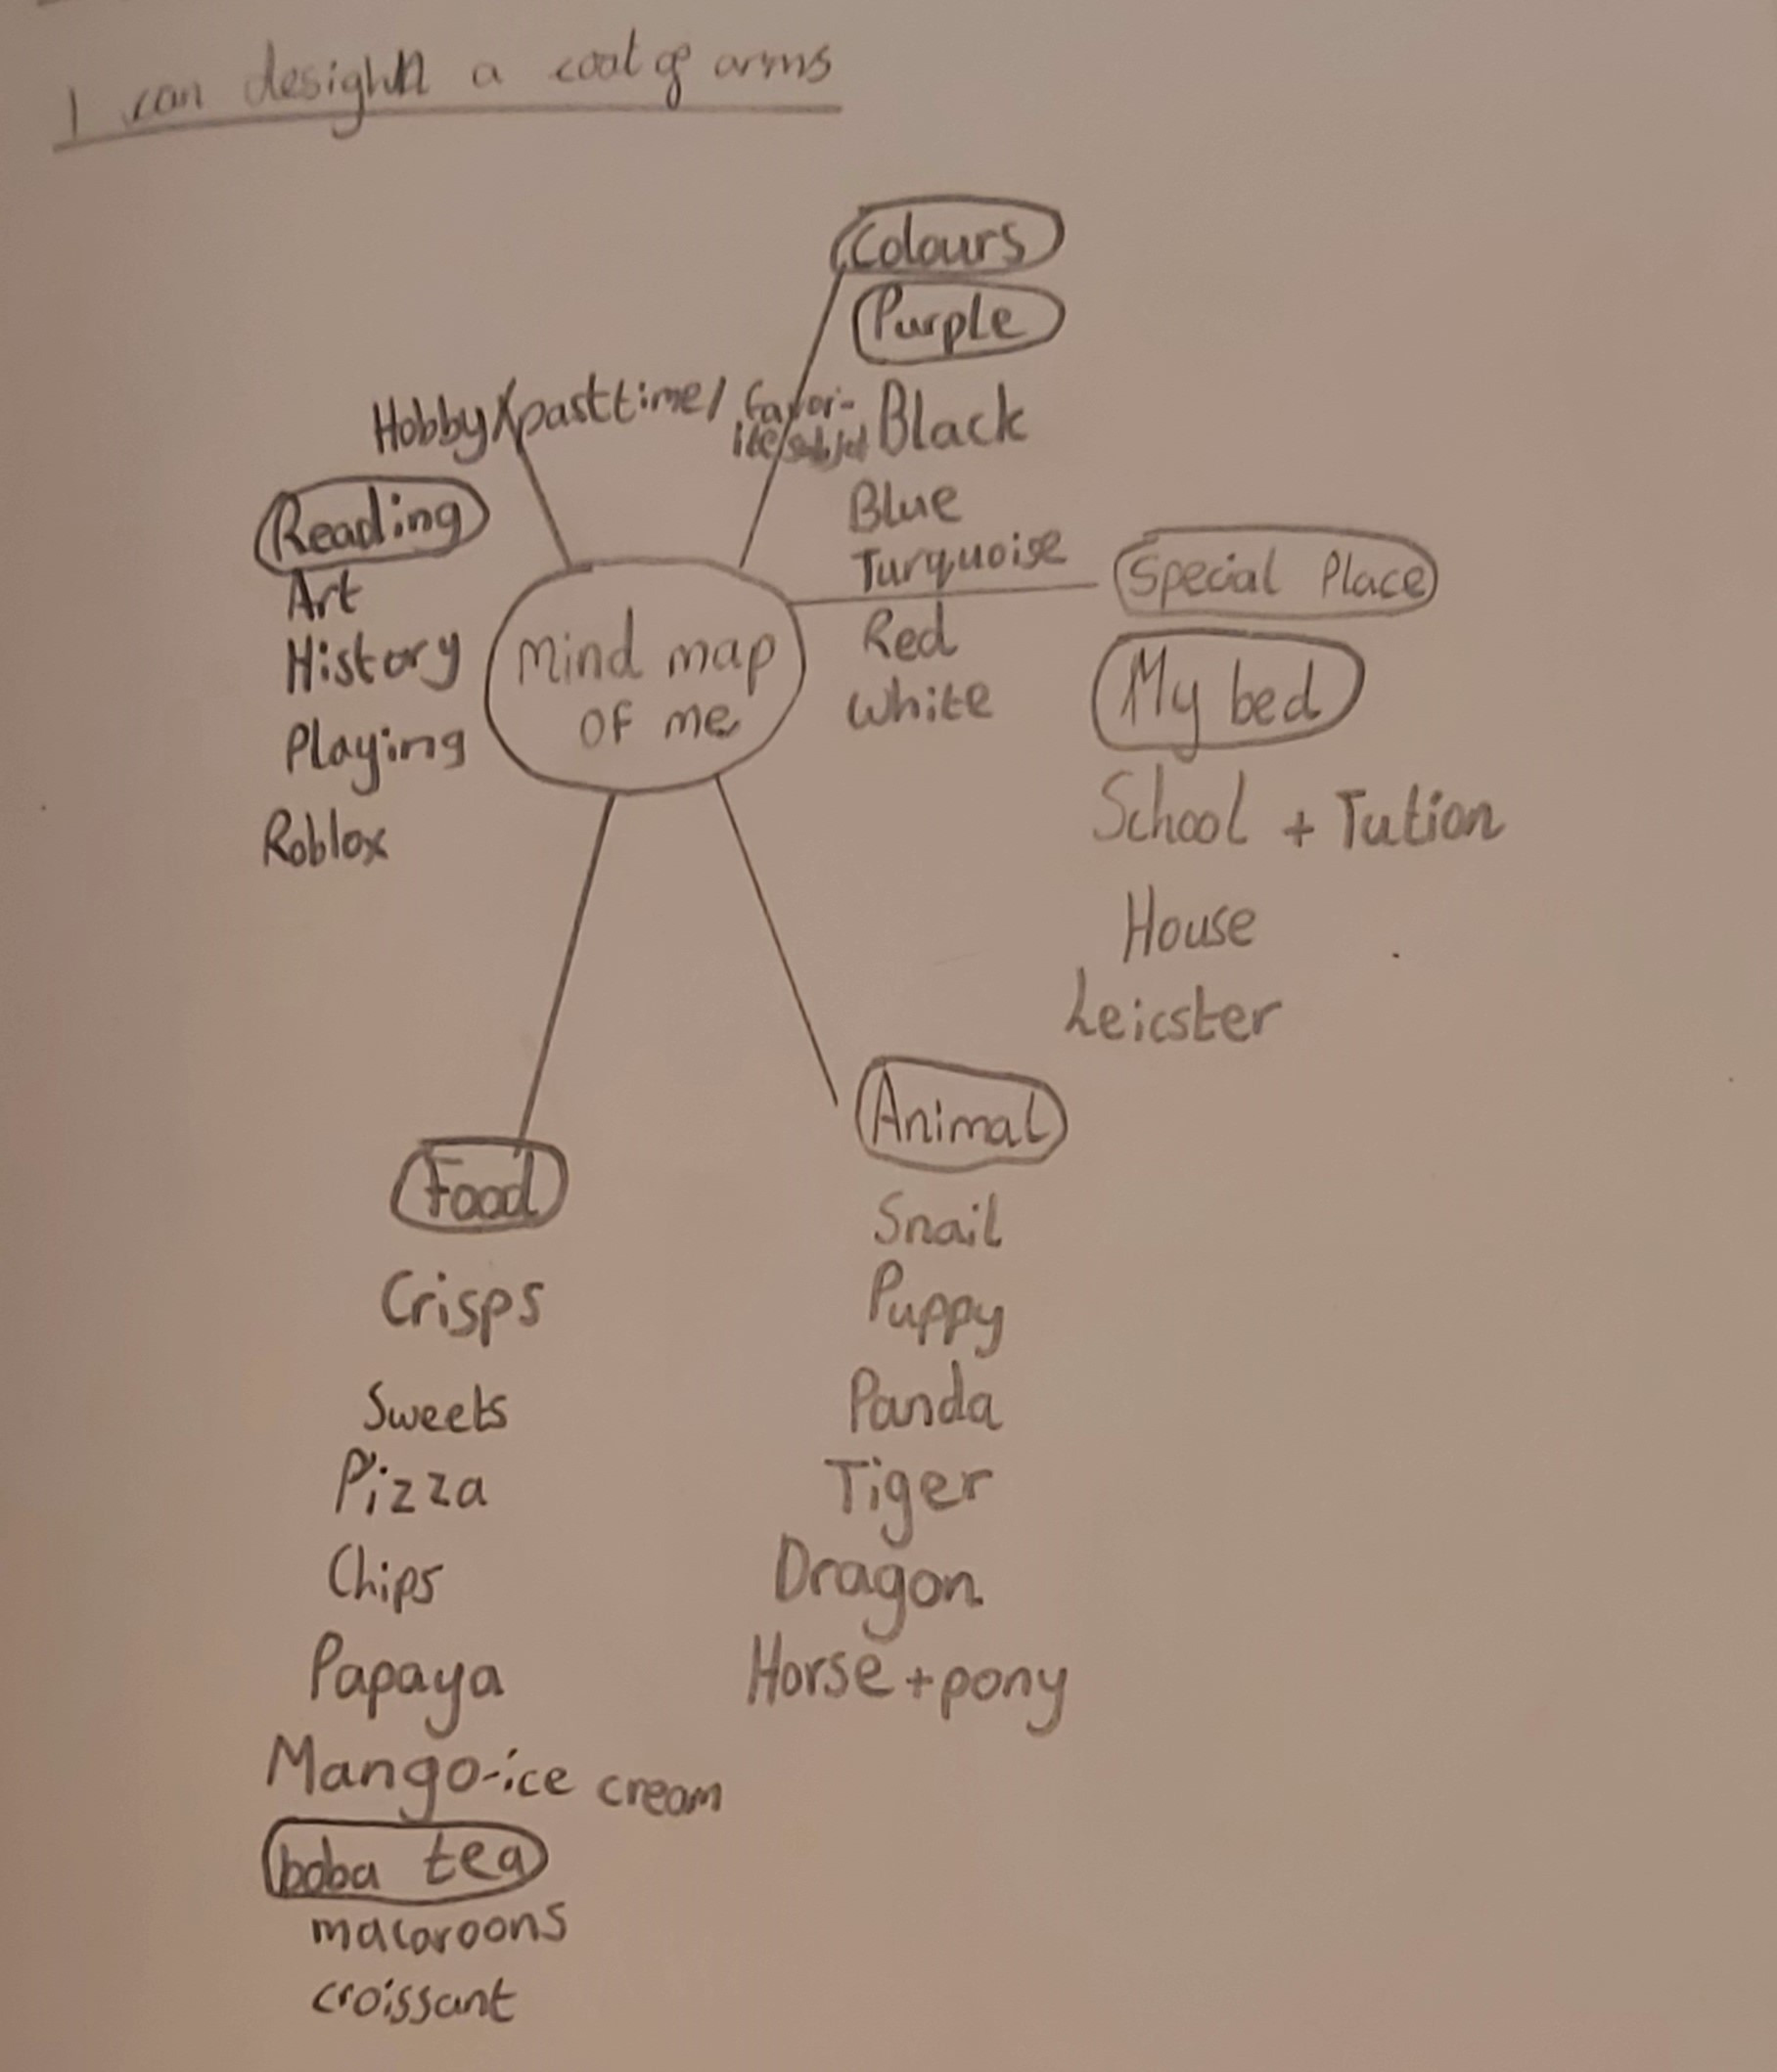 I can designn a coat of arms
Colours
Purple
Black
Blue
Turquoise
Red
White
Hobby/pasttime/ favor-
ite/subject
Reading
Art
History
Playing
Roblox
Mind map
of me
Special Place
My bed
School + Tution
House
Leicster
Animal
Snail
Puppy
Panda
Tiger
Dragon
Horse + pony
Food
Crisps
Sweets
Pizza
Chips
Papaya
Mango-ice cream
boba tea
macaroons
croissant